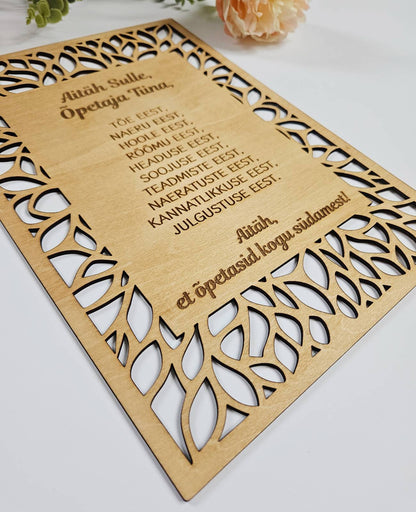 Aitäh Sulle,
Õpetaja Tiina,
TÕE EEST,
NAERU EEST,
HOOLE EEST,
RÕÕMU EEST,
HEADUSE EEST,
SOOJUSE EEST,
TEADMISTE EEST,
NAERATUSTE EEST,
KANNATLIKKUSE EEST,
JULGUSTUSE EEST.
Aitäh,
et õpetasid kogu südamest!